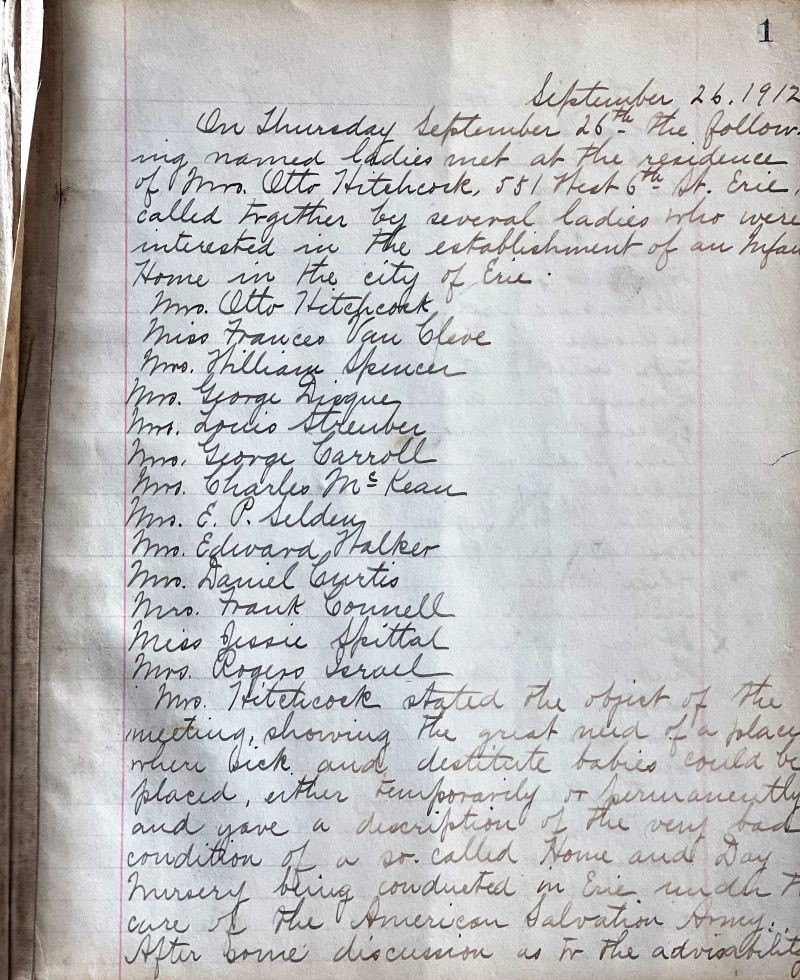 1
September 26. 1912
On Thursday September 26th the follow-
ing named ladies met at the residence
of Mrs. Otto Hitchcock, 551 West 6th St. Erie,
called together by several ladies who were
interested in the establishment of an Infan
Home in the city of Erie.
Mrs. Otto Hitchcock
Miss Frances Van Cleve
Mrs. William Spencer
Mrs. George Disque
Mrs. Louis Streuber
Mrs. George Carroll
Mrs. Charles Mc Kean
Mrs. E. P. Selden
Mrs. Edward Walker
Mrs. Daniel Curtis
Mrs. Frank Connell
Miss Jessie Spittal
Mrs. Rogers Israel
Mrs. Hitchcock stated the object of the
meeting, showing the great need of a place
where sick and destitute babies could be
placed, either temporarily or permanently
and gave a description of the very bad
condition of a so-called Home and Day
Nursery being conducted in Erie under t
care of the American Salvation Army.
After some discussion as to the advisability